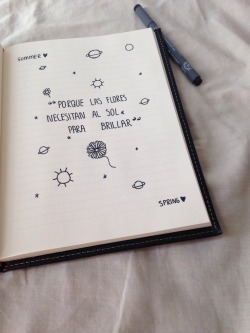 SUMMER ♥
"PORQUE LAS FLORES
NECESITAN AL SOL
PARA BRILLAR"
SPRING ♥